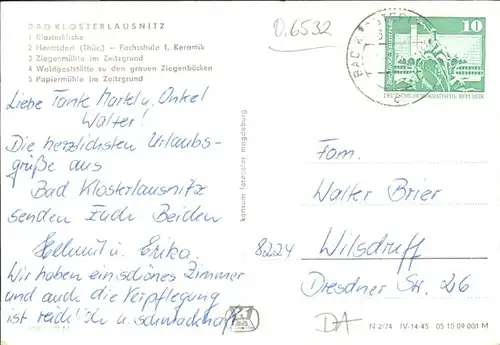 BAD KLOSTERLAUSNITZ
1 Klosterkirche
2 Hermsdorf (Thür.) – Fachschule f. Keramik
3 Ziegenmühle im Zeitzgrund
4 Waldgaststätte zu den grauen Ziegenböcken
5 Papiermühle im Zeitzgrund
0.6532
BAD KLOSTERL
10
DEUTSCHE DEMOKRATISCHE REPUBLIK
Liebe Tante Martel u. Onkel
Walter!
Die herzlichsten Urlaubs-
grüße aus
Bad Klosterlausnitz
senden Euch Beiden
Helmut u. Erika.
Wir haben ein schönes Zimmer
und auch die Verpflegung
ist reichlich u. schmackhaft.
konsum fotocolor magdeburg
Fam.
Walter Brier
8224 Wilsdruff
Dresdner Str. 26
DA
N 2/74 IV-14-45 05 10 09 008 M